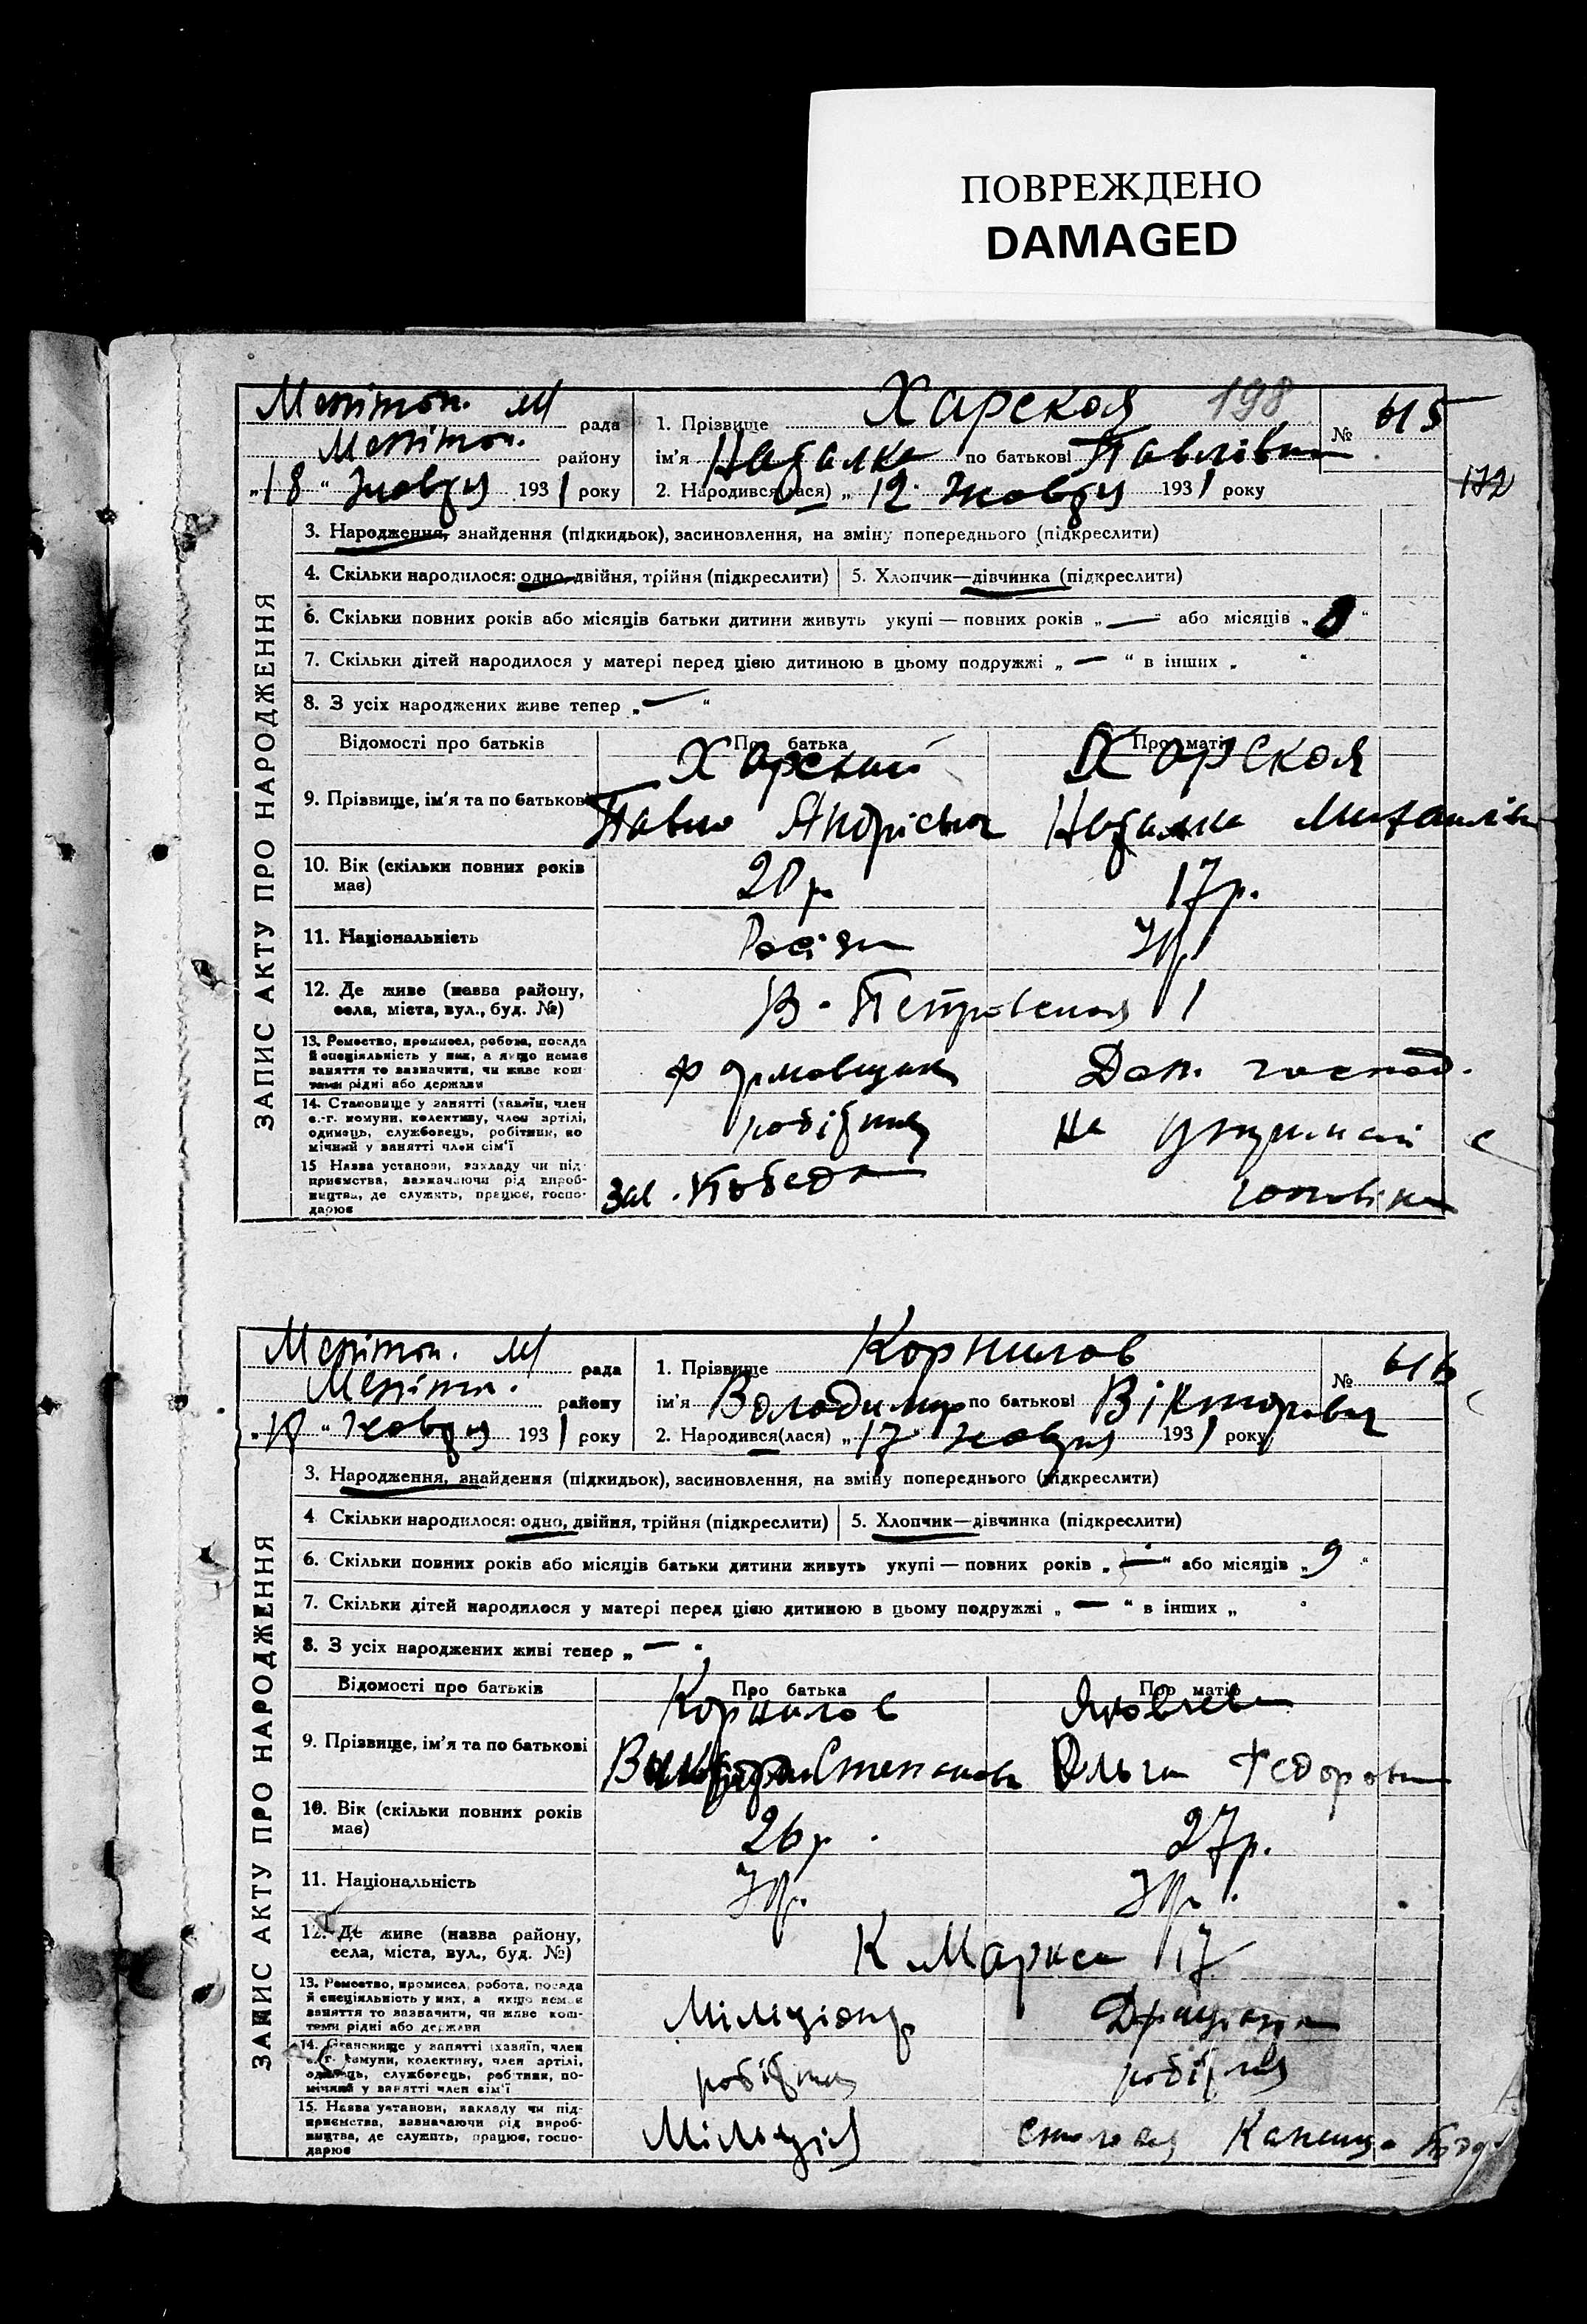 ПОВРЕЖДЕНО
DAMAGED
Меліт. М рада
Меліт. району
„18“ Жовтня 1931 року
1. Прізвище Харская 198
№ 615
ім'я Наталка по батькові Павлівна
172
2. Народився(лася) „12“ Жовтня 1931 року
ЗАПИС АКТУ ПРО НАРОДЖЕННЯ
3. Народження, знайдення (підкидьок), засиновлення, на зміну попереднього (підкреслити)
4. Скільки народилося: одно, двійня, трійня (підкреслити) 5. Хлопчик—дівчинка (підкреслити)
6. Скільки повних років або місяців батьки дитини живуть укупі — повних років „—“ або місяців „8“
7. Скільки дітей народилося у матері перед цією дитиною в цьому подружжі „—“ в інших „ “
8. З усіх народжених живе тепер „—“
Відомості про батьків Про батька Про матір
9. Прізвище, ім'я та по батькові
Харский Харская
Павло Андрієвич Наталка Михайлівн
10. Вік (скільки повних років має) 20 р 17 р.
11. Національність Росіян Укр
12. Де живе (назва району, села, міста, вул., буд. №) В. Петровская 1
13. Ремество, промисел, робота, посада й спеціяльність у них, а якщо немає заняття то зазначити, чи живе коштами рідні або держави
Формовщик Дом. господ.
14. Становище у занятті (хазяїн, член с.-г. комуни, колективу, член артілі, одинець, службовець, робітник, помічний у занятті член сім'ї
робітник на утриманні
15 Назва установи, закладу чи підприємства, зазначаючи рід виробництва, де служить, працює, господарює
Зав. Победа чоловіка
Меліт. М рада
Меліт. району
„18“ Жовтня 1931 року
1. Прізвище Корнилов
№ 616
ім'я Володимир по батькові Вікторович
2. Народився(лася) „17“ Жовтня 1931 року
ЗАПИС АКТУ ПРО НАРОДЖЕННЯ
3. Народження, знайдення (підкидьок), засиновлення, на зміну попереднього (підкреслити)
4 Скільки народилося: одно, двійня, трійня (підкреслити) 5. Хлопчик—дівчинка (підкреслити)
6. Скільки повних років або місяців батьки дитини живуть укупі — повних років „—“ або місяців „9“
7. Скільки дітей народилося у матері перед цією дитиною в цьому подружжі „—“ в інших „
8. З усіх народжених живі тепер „—“
Відомості про батьків Про батька Про матір
9. Прізвище, ім'я та по батькові
Корнилов Яковлева
Степанов Ольга Федоровн
10. Вік (скільки повних років має) 26 р. 27 р.
11. Національність Укр. Укр.
12. Де живе (назва району, села, міста, вул., буд. №) К Маркса 17
13. Ремество, промисел, робота, посада й спеціяльність у них, а якщо немає заняття то зазначити, чи живе коштами рідні або держави
Міліціонер
14. Становище у занятті (хазяїн, член с.-г. комуни, колективу, член артілі, одинець, службовець, робітник, помічний у занятті член сім'ї
робітник робітня
15. Назва установи, закладу чи підприємства, зазначаючи рід виробництва, де служить, працює, господарює
Міліція столовая